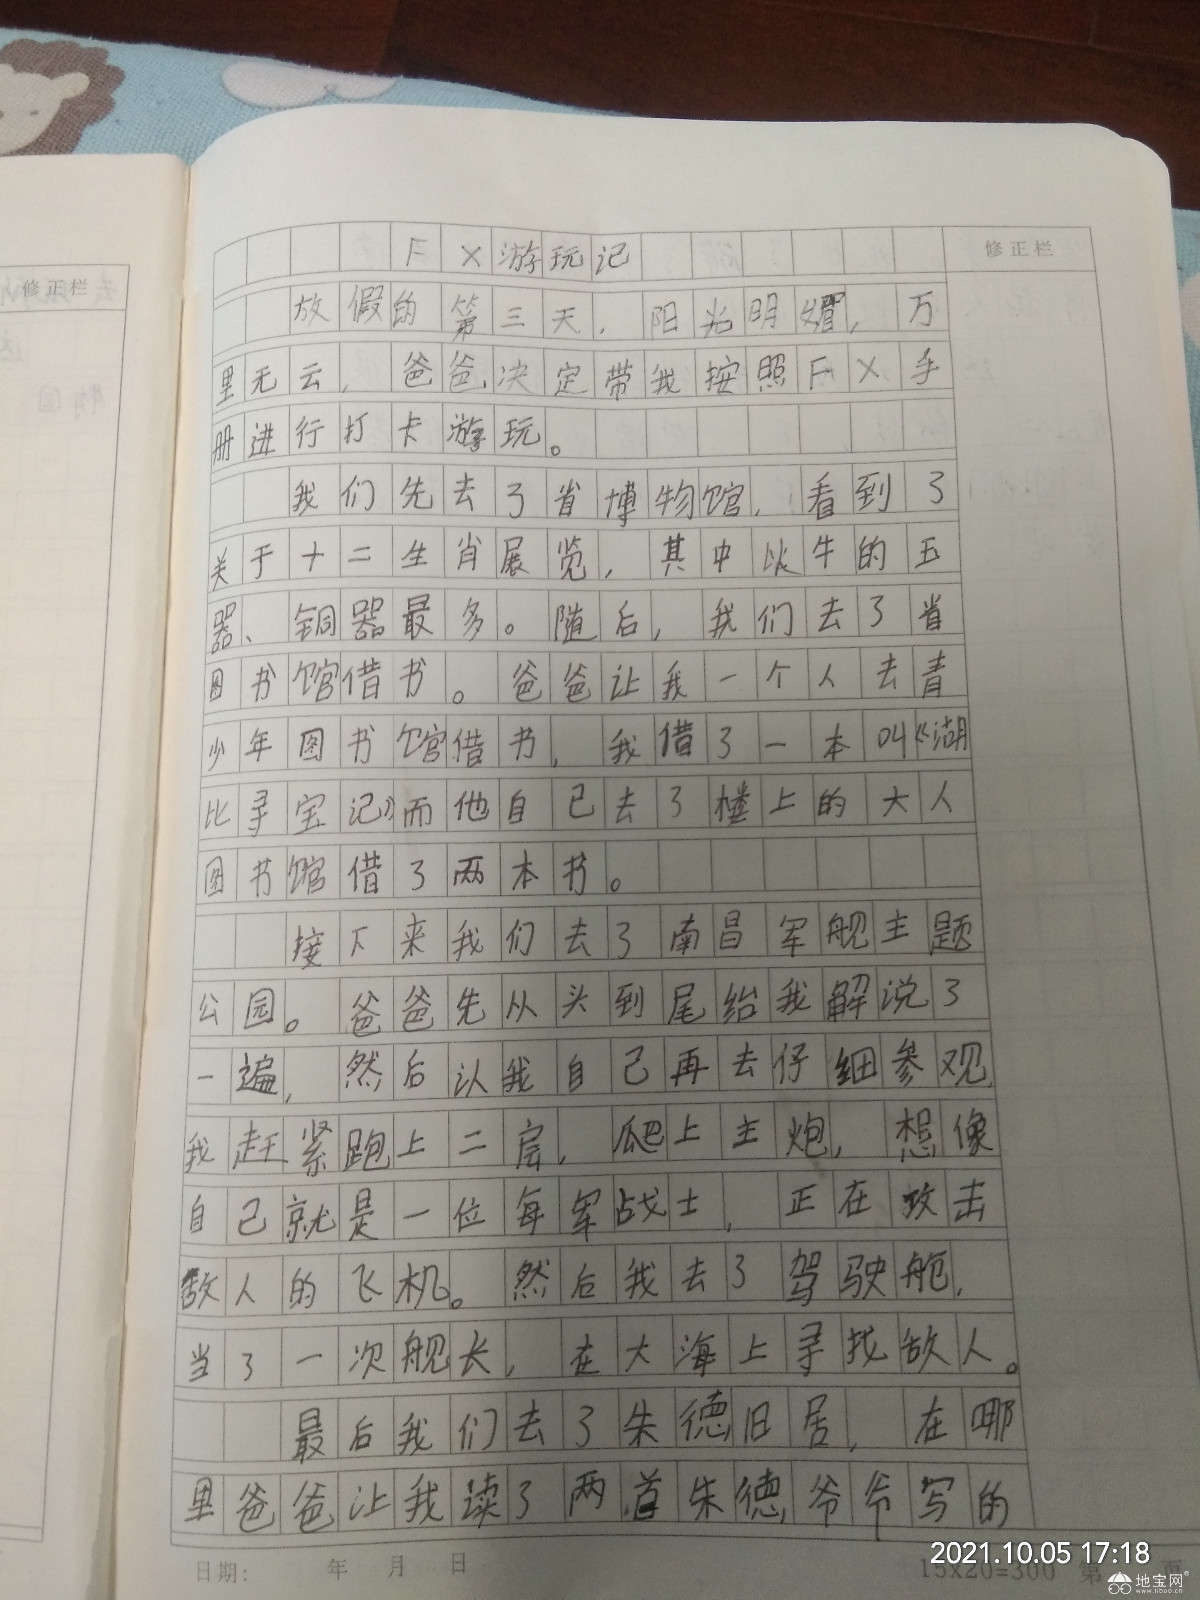 FX游玩记
修正栏
修正栏
放假的第三天,阳光明媚,万
里无云,爸爸决定带我按照FX手
册进行打卡游玩。
我们先去了省博物馆,看到了
关于十二生肖展览,其中以牛的玉
器、铜器最多。随后,我们去了省
图书馆借书。爸爸让我一个人去青
少年图书馆借书,我借了一本叫《湖
比寻宝记》而他自己去了楼上的大人
图书馆借了两本书。
接下来我们去了南昌军舰主题
公园。爸爸先从头到尾给我解说了
一遍,然后认我自己再去仔细参观,
我赶紧跑上二层,爬上主炮,想像
自己就是一位每军战士,正在攻击
敌人的飞机。然后我去了驾驶舱,
当了一次舰长,在大海上寻找敌人。
最后我们去了朱德旧居,在哪
里爸爸让我读了两首朱德爷爷写的
日期: 年 月 日
15x20=300 第 页
2021.10.05 17:18
地宝网